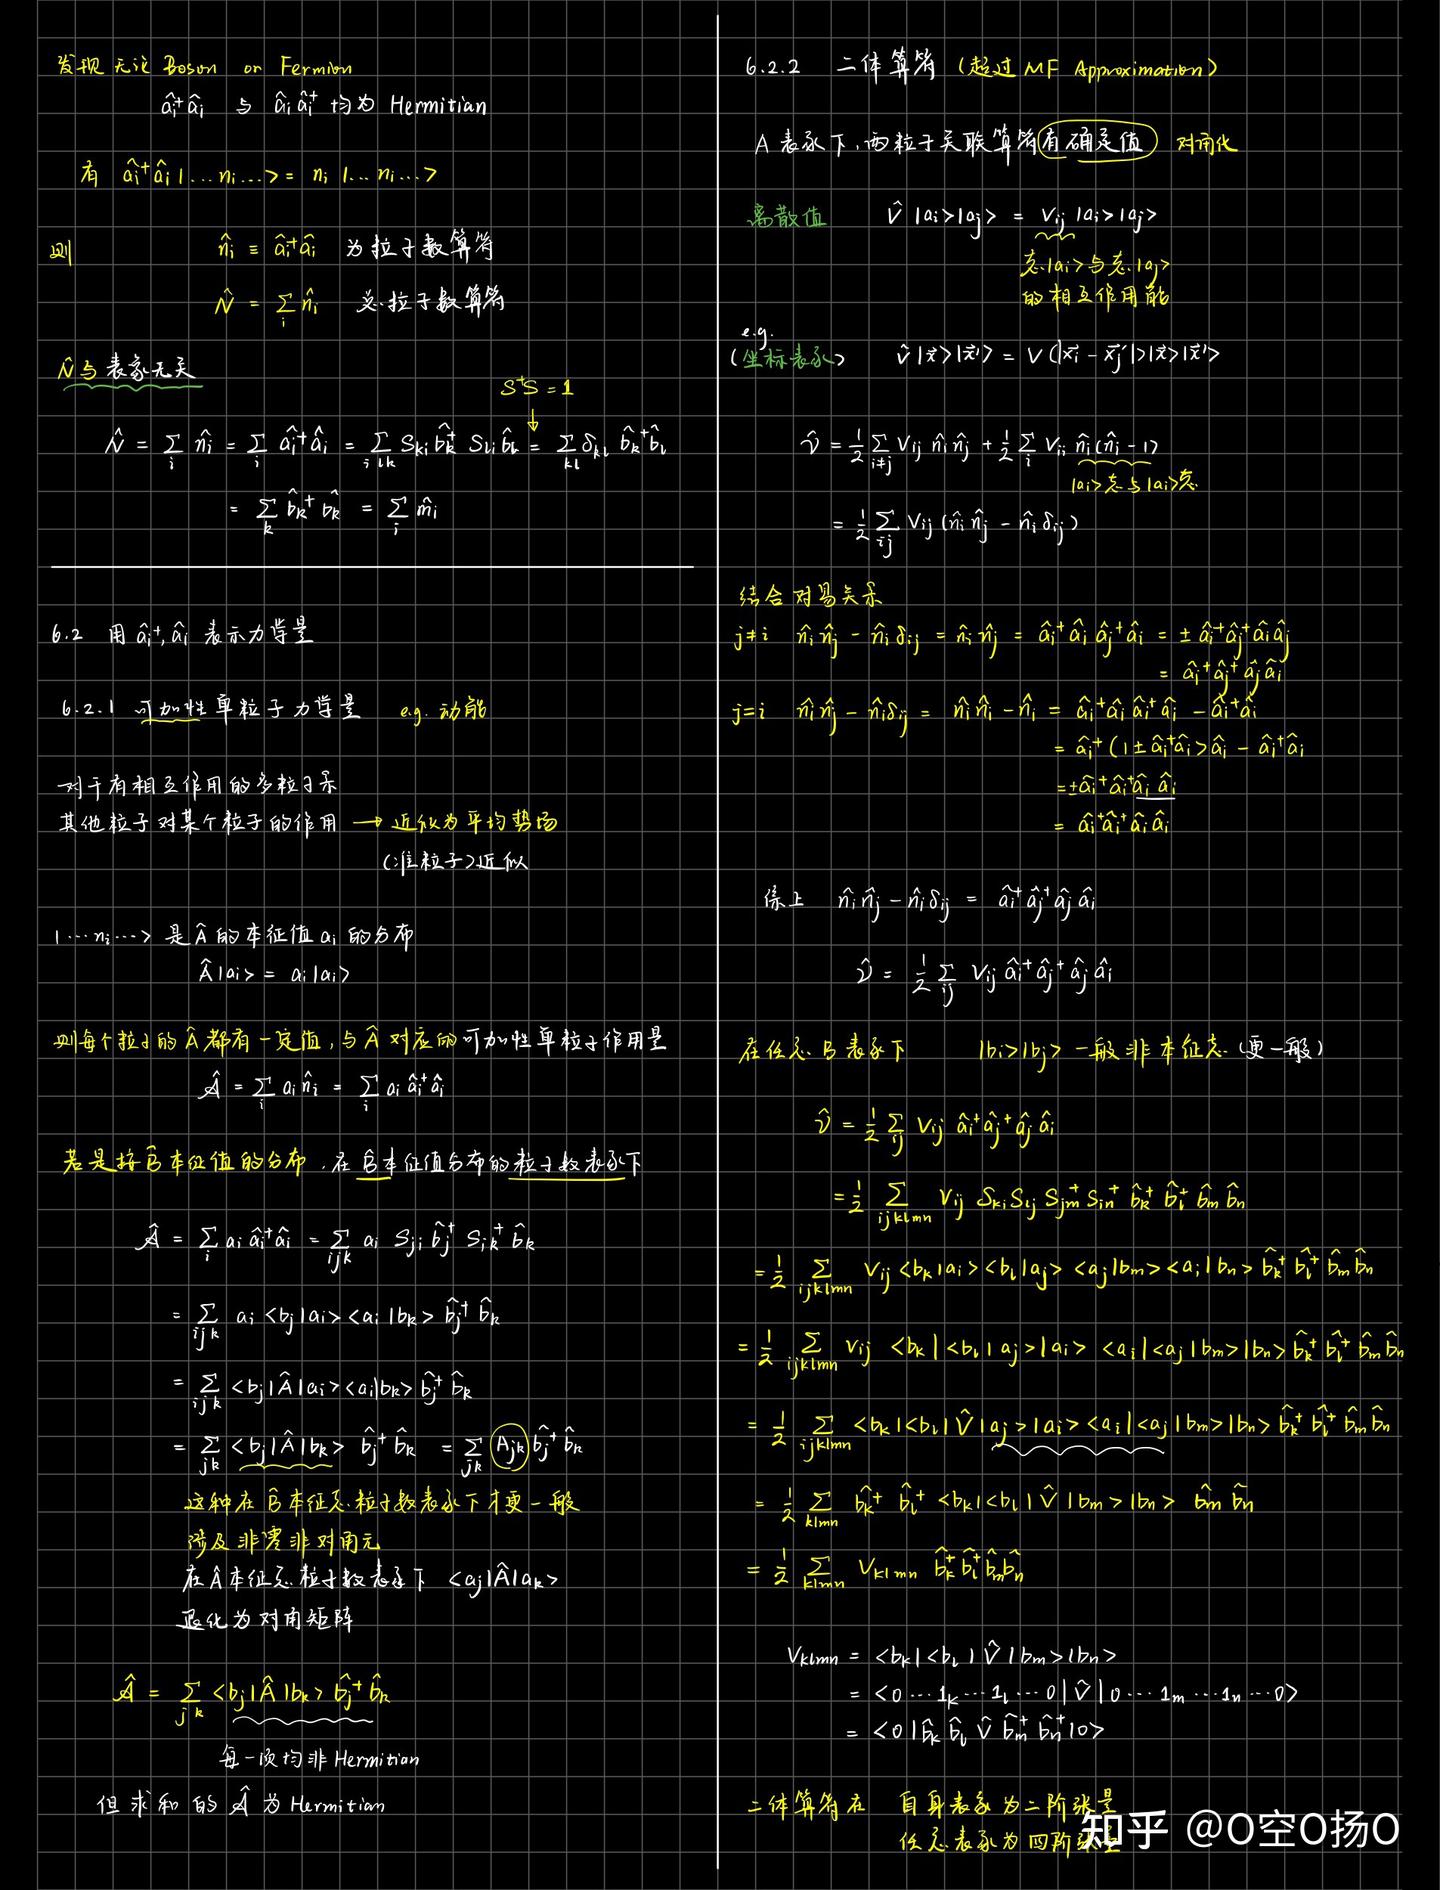 发现 无论 Boson or Fermion
âᵢ⁺âᵢ 与 âᵢâᵢ⁺ 均为 Hermitian
有 âᵢ⁺âᵢ|...nᵢ...> = nᵢ|...nᵢ...>
则 n̂ᵢ ≡ âᵢ⁺âᵢ 为粒子数算符
N̂ = Σᵢ n̂ᵢ 总粒子数算符
N̂与表象无关
S⁺S = 1
N̂ = Σᵢ n̂ᵢ = Σᵢ âᵢ⁺âᵢ = Σᵢₗₖ Sₖᵢb̂ₖ⁺ Sₗᵢb̂ₗ = Σₖₗ δₖₗ b̂ₖ⁺b̂ₗ
= Σₖ b̂ₖ⁺b̂ₖ = Σᵢ m̂ᵢ
6.2 用 âᵢ⁺, âᵢ 表示力学量
6.2.1 可加性单粒子力学量 e.g. 动能
对于有相互作用的多粒子系
其他粒子对某个粒子的作用 → 近似为平均势场
(准粒子)近似
|...nᵢ...> 是Â的本征值 aᵢ 的分布
Â|aᵢ> = aᵢ|aᵢ>
则每个粒子的Â都有一定值,与Â对应的可加性单粒子作用量
𝒜̂ = Σᵢ aᵢn̂ᵢ = Σᵢ aᵢâᵢ⁺âᵢ
若是按B̂本征值的分布,在B̂本征值分布的粒子数表象下
𝒜̂ = Σᵢ aᵢâᵢ⁺âᵢ = Σᵢⱼₖ aᵢ Sⱼᵢb̂ⱼ⁺ Sᵢₖ⁺b̂ₖ
= Σᵢⱼₖ aᵢ<bⱼ|aᵢ><aᵢ|bₖ> b̂ⱼ⁺b̂ₖ
= Σᵢⱼₖ <bⱼ|Â|aᵢ><aᵢ|bₖ> b̂ⱼ⁺b̂ₖ
= Σⱼₖ <bⱼ|Â|bₖ> b̂ⱼ⁺b̂ₖ = Σⱼₖ Aⱼₖ b̂ⱼ⁺b̂ₖ
这种在B̂本征态粒子数表象下才更一般
涉及非零非对角元
在Â本征态粒子数表象下 <aⱼ|Â|aₖ>
退化为对角矩阵
𝒜̂ = Σⱼₖ <bⱼ|Â|bₖ> b̂ⱼ⁺b̂ₖ
每一项均非Hermitian
但求和的𝒜̂为Hermitian
6.2.2 二体算符 (超过 MF Approximation)
A表象下,两粒子关联算符有确定值 对角化
离散值 V̂|aᵢ>|aⱼ> = Vᵢⱼ|aᵢ>|aⱼ>
态|aᵢ>与态|aⱼ>
的相互作用能
e.g.
(坐标表象) V̂|x⃗>|x⃗'> = V(|x⃗ᵢ - x⃗ⱼ'|)|x⃗>|x⃗'>
𝒱̂ = ½Σᵢ≠ⱼ Vᵢⱼ n̂ᵢn̂ⱼ + ½Σᵢ Vᵢᵢ n̂ᵢ(n̂ᵢ-1)
|aᵢ>态与|aᵢ>态
= ½Σᵢⱼ Vᵢⱼ(n̂ᵢn̂ⱼ - n̂ᵢδᵢⱼ)
结合对易关系
j≠i n̂ᵢn̂ⱼ - n̂ᵢδᵢⱼ = n̂ᵢn̂ⱼ = âᵢ⁺âᵢâⱼ⁺âᵢ = ±âᵢ⁺âⱼ⁺âᵢâⱼ
= âᵢ⁺âⱼ⁺âⱼâᵢ
j=i n̂ᵢn̂ⱼ - n̂ᵢδᵢⱼ = n̂ᵢn̂ᵢ - n̂ᵢ = âᵢ⁺âᵢâᵢ⁺âᵢ - âᵢ⁺âᵢ
= âᵢ⁺(1±âᵢ⁺âᵢ)âᵢ - âᵢ⁺âᵢ
= ±âᵢ⁺âᵢ⁺âᵢâᵢ
= âᵢ⁺âᵢ⁺âᵢâᵢ
综上 n̂ᵢn̂ⱼ - n̂ᵢδᵢⱼ = âᵢ⁺âⱼ⁺âⱼâᵢ
𝒱̂ = ½Σᵢⱼ Vᵢⱼ âᵢ⁺âⱼ⁺âⱼâᵢ
在任意B表象下 |bᵢ>|bⱼ> 一般非本征态(更一般)
𝒱̂ = ½Σᵢⱼ Vᵢⱼ âᵢ⁺âⱼ⁺âⱼâᵢ
= ½Σᵢⱼₖₗₘₙ Vᵢⱼ SₖᵢSₗⱼSⱼₘ⁺Sᵢₙ⁺ b̂ₖ⁺b̂ₗ⁺b̂ₘb̂ₙ
= ½Σᵢⱼₖₗₘₙ Vᵢⱼ<bₖ|aᵢ><bₗ|aⱼ><aⱼ|bₘ><aᵢ|bₙ> b̂ₖ⁺b̂ₗ⁺b̂ₘb̂ₙ
= ½Σᵢⱼₖₗₘₙ Vᵢⱼ <bₖ|<bₗ|aⱼ>|aᵢ> <aᵢ|<aⱼ|bₘ>|bₙ> b̂ₖ⁺b̂ₗ⁺b̂ₘb̂ₙ
= ½Σᵢⱼₖₗₘₙ <bₖ|<bₗ|V̂|aⱼ>|aᵢ><aᵢ|<aⱼ|bₘ>|bₙ> b̂ₖ⁺b̂ₗ⁺b̂ₘb̂ₙ
= ½Σₖₗₘₙ b̂ₖ⁺b̂ₗ⁺<bₖ|<bₗ|V̂|bₘ>|bₙ> b̂ₘb̂ₙ
= ½Σₖₗₘₙ Vₖₗₘₙ b̂ₖ⁺b̂ₗ⁺b̂ₘb̂ₙ
Vₖₗₘₙ = <bₖ|<bₗ|V̂|bₘ>|bₙ>
= <0...1ₖ...1ₗ...0|V̂|0...1ₘ...1ₙ...0>
= <0|b̂ₖb̂ₗV̂b̂ₘ⁺b̂ₙ⁺|0>
二体算符在 自身表象为二阶张量
任意表象为四阶张量
知乎 @O空O扬O